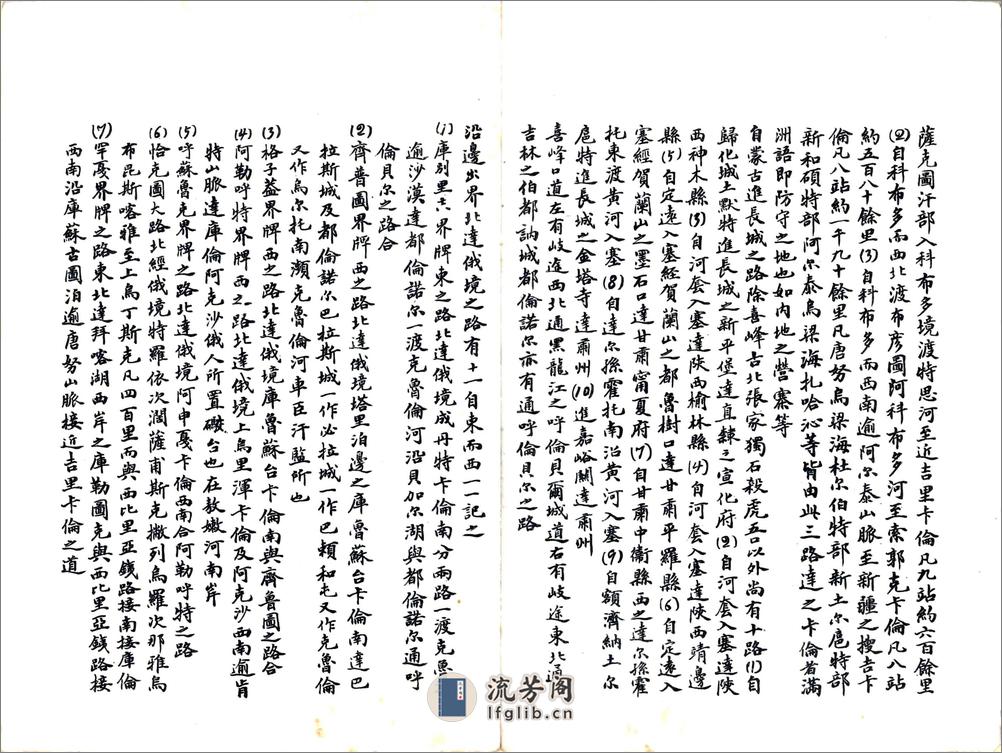 薩克圖汗部入科布多境渡特思河至近吉里卡倫凡九站約六百餘里
(2)自科布多而西北渡布彦圖阿科布多河至索郭克卡倫凡八站
約五百八十餘里(3)自科布多而西南逾阿尔泰山脈至新疆之搜吉卡
倫凡八站約一千九十餘里凡唐努烏梁海杜尔伯特部新土尔扈特部
新和碩特部阿尔泰烏梁海扎哈沁等皆由此三路達之卡倫者滿
洲語即防守之地也如内地之營寨等
自蒙古進長城之路除喜峰古北張家獨石殺虎五口以外尚有十路(1)自
歸化城土默特進長城之新平堡達直隸之宣化府(2)自河套入塞達陝
西神木縣(3)自河套入塞達陝西榆林縣(4)自河套入塞達陝西靖邊
縣(5)自定遠入塞經賀蘭山之都魯樹口達甘肅平羅縣(6)自定遠入
塞經賀蘭山之墨石口達甘肅甯夏府(7)自甘肅中衛縣西之達尔孫霍
托東渡黄河入塞(8)自達尔孫霍托南沿黄河入塞(9)自額濟納土尔
扈特進長城之金塔寺達肅州(10)進嘉峪關達肅州
喜峰口道左有岐途西北通黑龍江之呼倫貝爾城道右有岐途東北通
吉林之伯都訥城都倫諾尔亦有通呼倫貝尔之路
沿邊出界北達俄境之路有十一自東而西一一記之
(1)庫别里士界牌東之路北達俄境成丹特卡倫南分兩路一渡克魯
逾沙漠達都倫諾尔一渡克魯倫河沿貝加尔湖與都倫諾尔通呼
倫貝尔之路合
(2)齊普圖界牌西之路北達俄境塔里泊邊之庫魯蘇台卡倫南達巴
拉斯城及都倫諾尔巴拉斯城一作必拉城一作巴賴和屯又作克魯倫
又作烏尔托南瀕克魯倫河車臣汗監所也
(3)格子葢界牌西之路北達俄境庫魯蘇台卡倫南與齊魯圖之路合
(4)阿勒呼特界牌西之路北達俄境上烏里渾卡倫及阿克沙西南逾肯
特山脈達庫倫阿克沙俄人所置礮台也在敖嫩河南岸
(5)呼蘇魯克界牌之路北達俄境阿申戞卡倫西南合阿勒呼特之路
(6)恰克圖大路北經俄境特羅依次濶薩甫斯克撒列烏羅次那雅烏
布昆斯喀雅至上烏丁斯克凡四百里而與西比里亞鉄路接南接庫倫
(7)罕戞界牌之路東北達拜喀湖西岸之庫勒圖克與西比里亞鉄路接
西南沿庫蘇古圖泊逾唐努山脈接近吉里卡倫之道
流芳阁
lfglib.cn